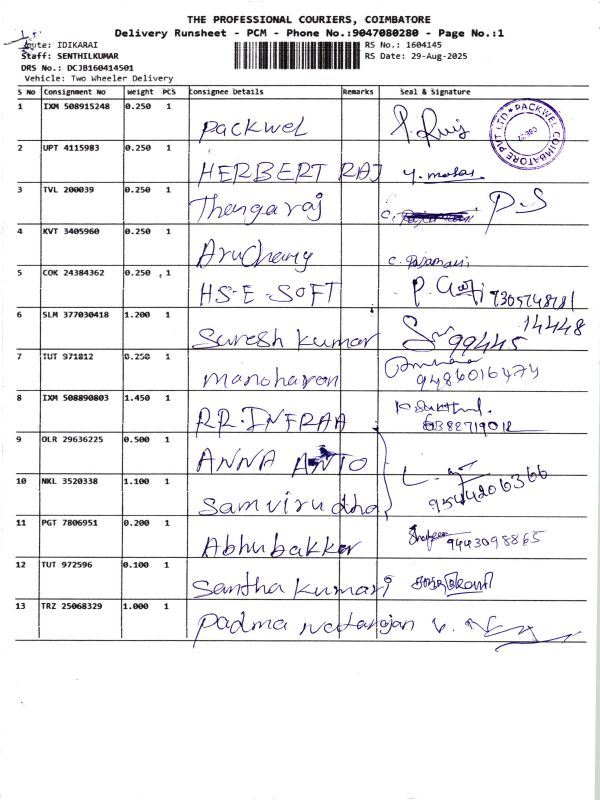 THE PROFESSIONAL COURIERS, COIMBATORE
Delivery Runsheet - PCM - Phone No.:9047080280 - Page No.:1
Route: IDIKARAI
RS No.: 1604145
Staff: SENTHILKUMAR
RS Date: 29-Aug-2025
DRS No.: DCJB160414501
Vehicle: Two Wheeler Delivery
S No Consignment No Weight PCS Consignee Details Remarks Seal & Signature
1 IXM 508915248 0.250 1 Packwel
PACKWEL COIMBATORE PVT LTD
2 UPT 4115983 0.250 1 HERBERT RAJ
3 TVL 200039 0.250 1 Thangaraj P.S
4 KVT 3405960 0.250 1 Aruchamy C. Rajamani
5 COK 24384362 0.250 1 HS-E-SOFT
6 SLM 377030418 1.200 1 Suresh kumar 99445 14448
7 TUT 971812 0.250 1 manoharan 9486016474
8 IXM 508890803 1.450 1 RR.INFRAA
9 OLR 29636225 0.500 1 ANNA ANTO
10 NKL 3520338 1.100 1 Samvirudha 9544206366
11 PGT 7806951 0.200 1 Abhubakker 9443098865
12 TUT 972596 0.100 1 Santha kumari
13 TRZ 25068329 1.000 1 Padma natarajan